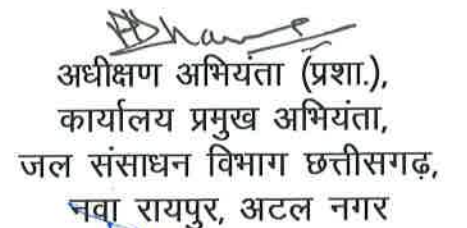 अधीक्षण अभियंता (प्रशा.),
कार्यालय प्रमुख अभियंता,
जल संसाधन विभाग छत्तीसगढ़,
नवा रायपुर, अटल नगर